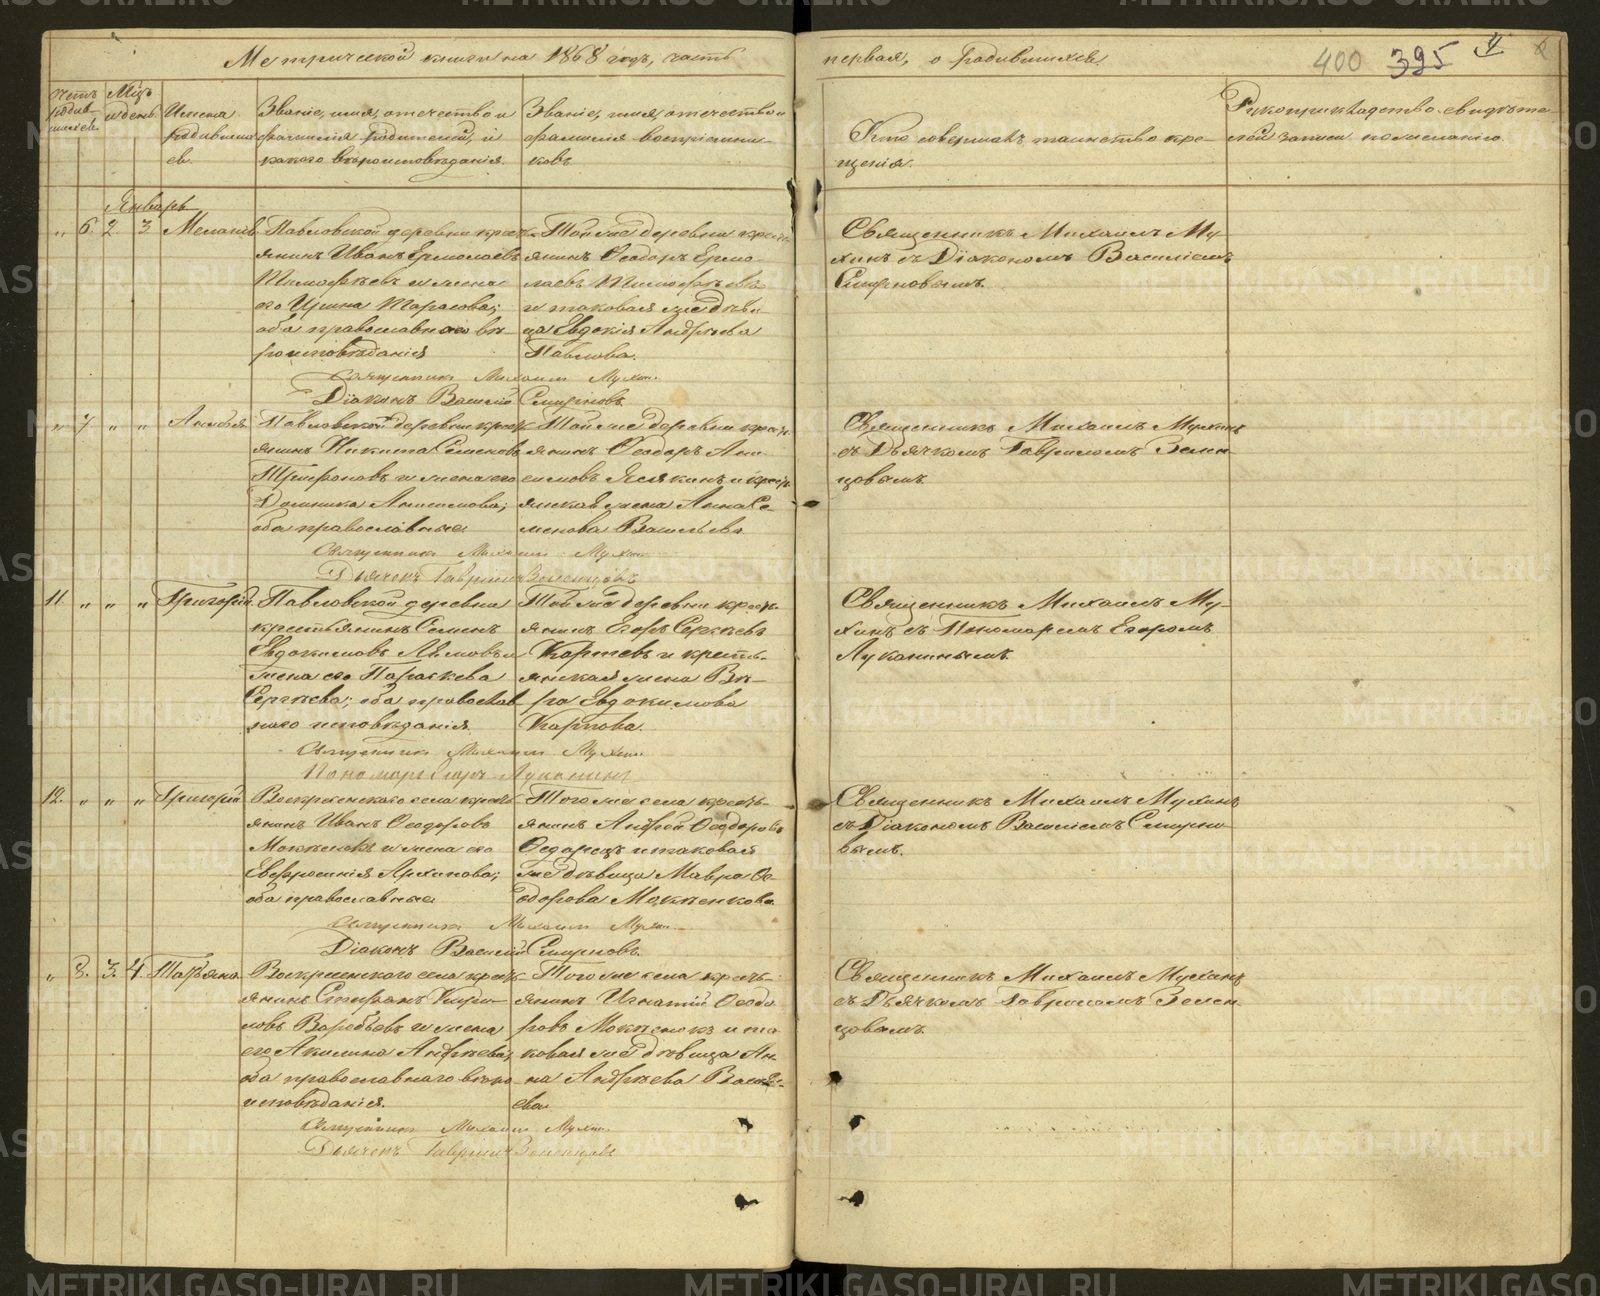 Метрической книги на 1868 годъ, часть
первая, о родившихся.
400 395 4
Счетъ родив-
шихся.
Мѣц.
и день.
Имена
родивших
ся.
Званіе, имя, отечество и
фамилія родителей, и
какого вѣроисповѣданія.
Званіе, имя, отечество и
фамилія воспріемни-
ковъ.
Кто совершалъ таинство кре-
щенія.
Рукоприкладство свидѣте-
лей записи по желанію.
Январь
„ 6. 2. 3. Меланія.
Павловской деревни кресть-
янинъ Иванъ Ермолаевъ
Тимофѣевъ и жена
его Ирина Тарасова;
оба православнаго вѣ-
роисповѣданія
Той же деревни кресть-
янинъ Ѳеодоръ Ермо-
лаевъ Тимофѣевъ
и таковая же дѣви-
ца Евдокія Андрѣева
Павлова.
Священникъ Михаилъ Му-
хинъ съ Діакономъ Василіемъ
Смирновымъ.
Священникъ Михаилъ Мухинъ.
Діаконъ Василій Смирновъ.
„ 7. „ „
Павловской деревни кресть-
янинъ Никита Семеновъ
Трифоновъ и жена его
Домника Анисимова;
оба православные
Той же деревни кресть-
янинъ Ѳеодоръ Ани-
симовъ и кресть-
янская жена Анна Се-
менова Васильева.
Священникъ Михаилъ Мухинъ
съ Дьячкомъ Гавріиломъ Зелен-
цовымъ.
Священникъ Михаилъ Мухинъ
Дьячекъ Гавріилъ Зеленцовъ
11. „ „ „ Григорій.
Павловской деревни
крестьянинъ Семенъ
Евдокимовъ
жена его Параскева
Сергѣева; оба православ-
наго исповѣданія.
Той же деревни кресть-
янинъ Егоръ Сергѣевъ
Карповъ и кресть-
янская жена Вѣ-
ра Евдокимова
Карпова.
Священникъ Михаилъ Му-
хинъ съ Пономаремъ Егоромъ
Луканинымъ.
Священникъ Михаилъ Мухинъ
Пономарь Егоръ Луканинъ
12. „ „ „ Григорій
Воскресенскаго села кресть-
янинъ Иванъ Ѳеодоровъ
и жена его
Евфросинія Архипова;
оба православные
Того же села кресть-
янинъ Андрей Ѳеодоровъ
и таковая
же дѣвица Мавра Ѳе-
одорова
Священникъ Михаилъ Мухинъ
съ Діакономъ Василіемъ Смирно-
вымъ.
Священникъ Михаилъ Мухинъ
Діаконъ Василій Смирновъ.
„ 8. 3. 4. Татьяна.
Воскресенскаго села кресть-
янинъ Стефанъ Кири-
ловъ Воробьевъ и жена
его Акилина Андрѣева;
оба православнаго вѣро-
исповѣданія.
Того же села кресть-
янинъ Игнатій Ѳеодо-
ровъ и та-
ковая же дѣвица Ан-
на Андрѣева Василь-
ева
Священникъ Михаилъ Мухинъ
съ Дьячкомъ Гавріиломъ Зелен-
цовымъ.
Священникъ Михаилъ Мухинъ
Дьячекъ Гавріилъ Зеленцовъ
METRIKI.GASO-URAL.RU